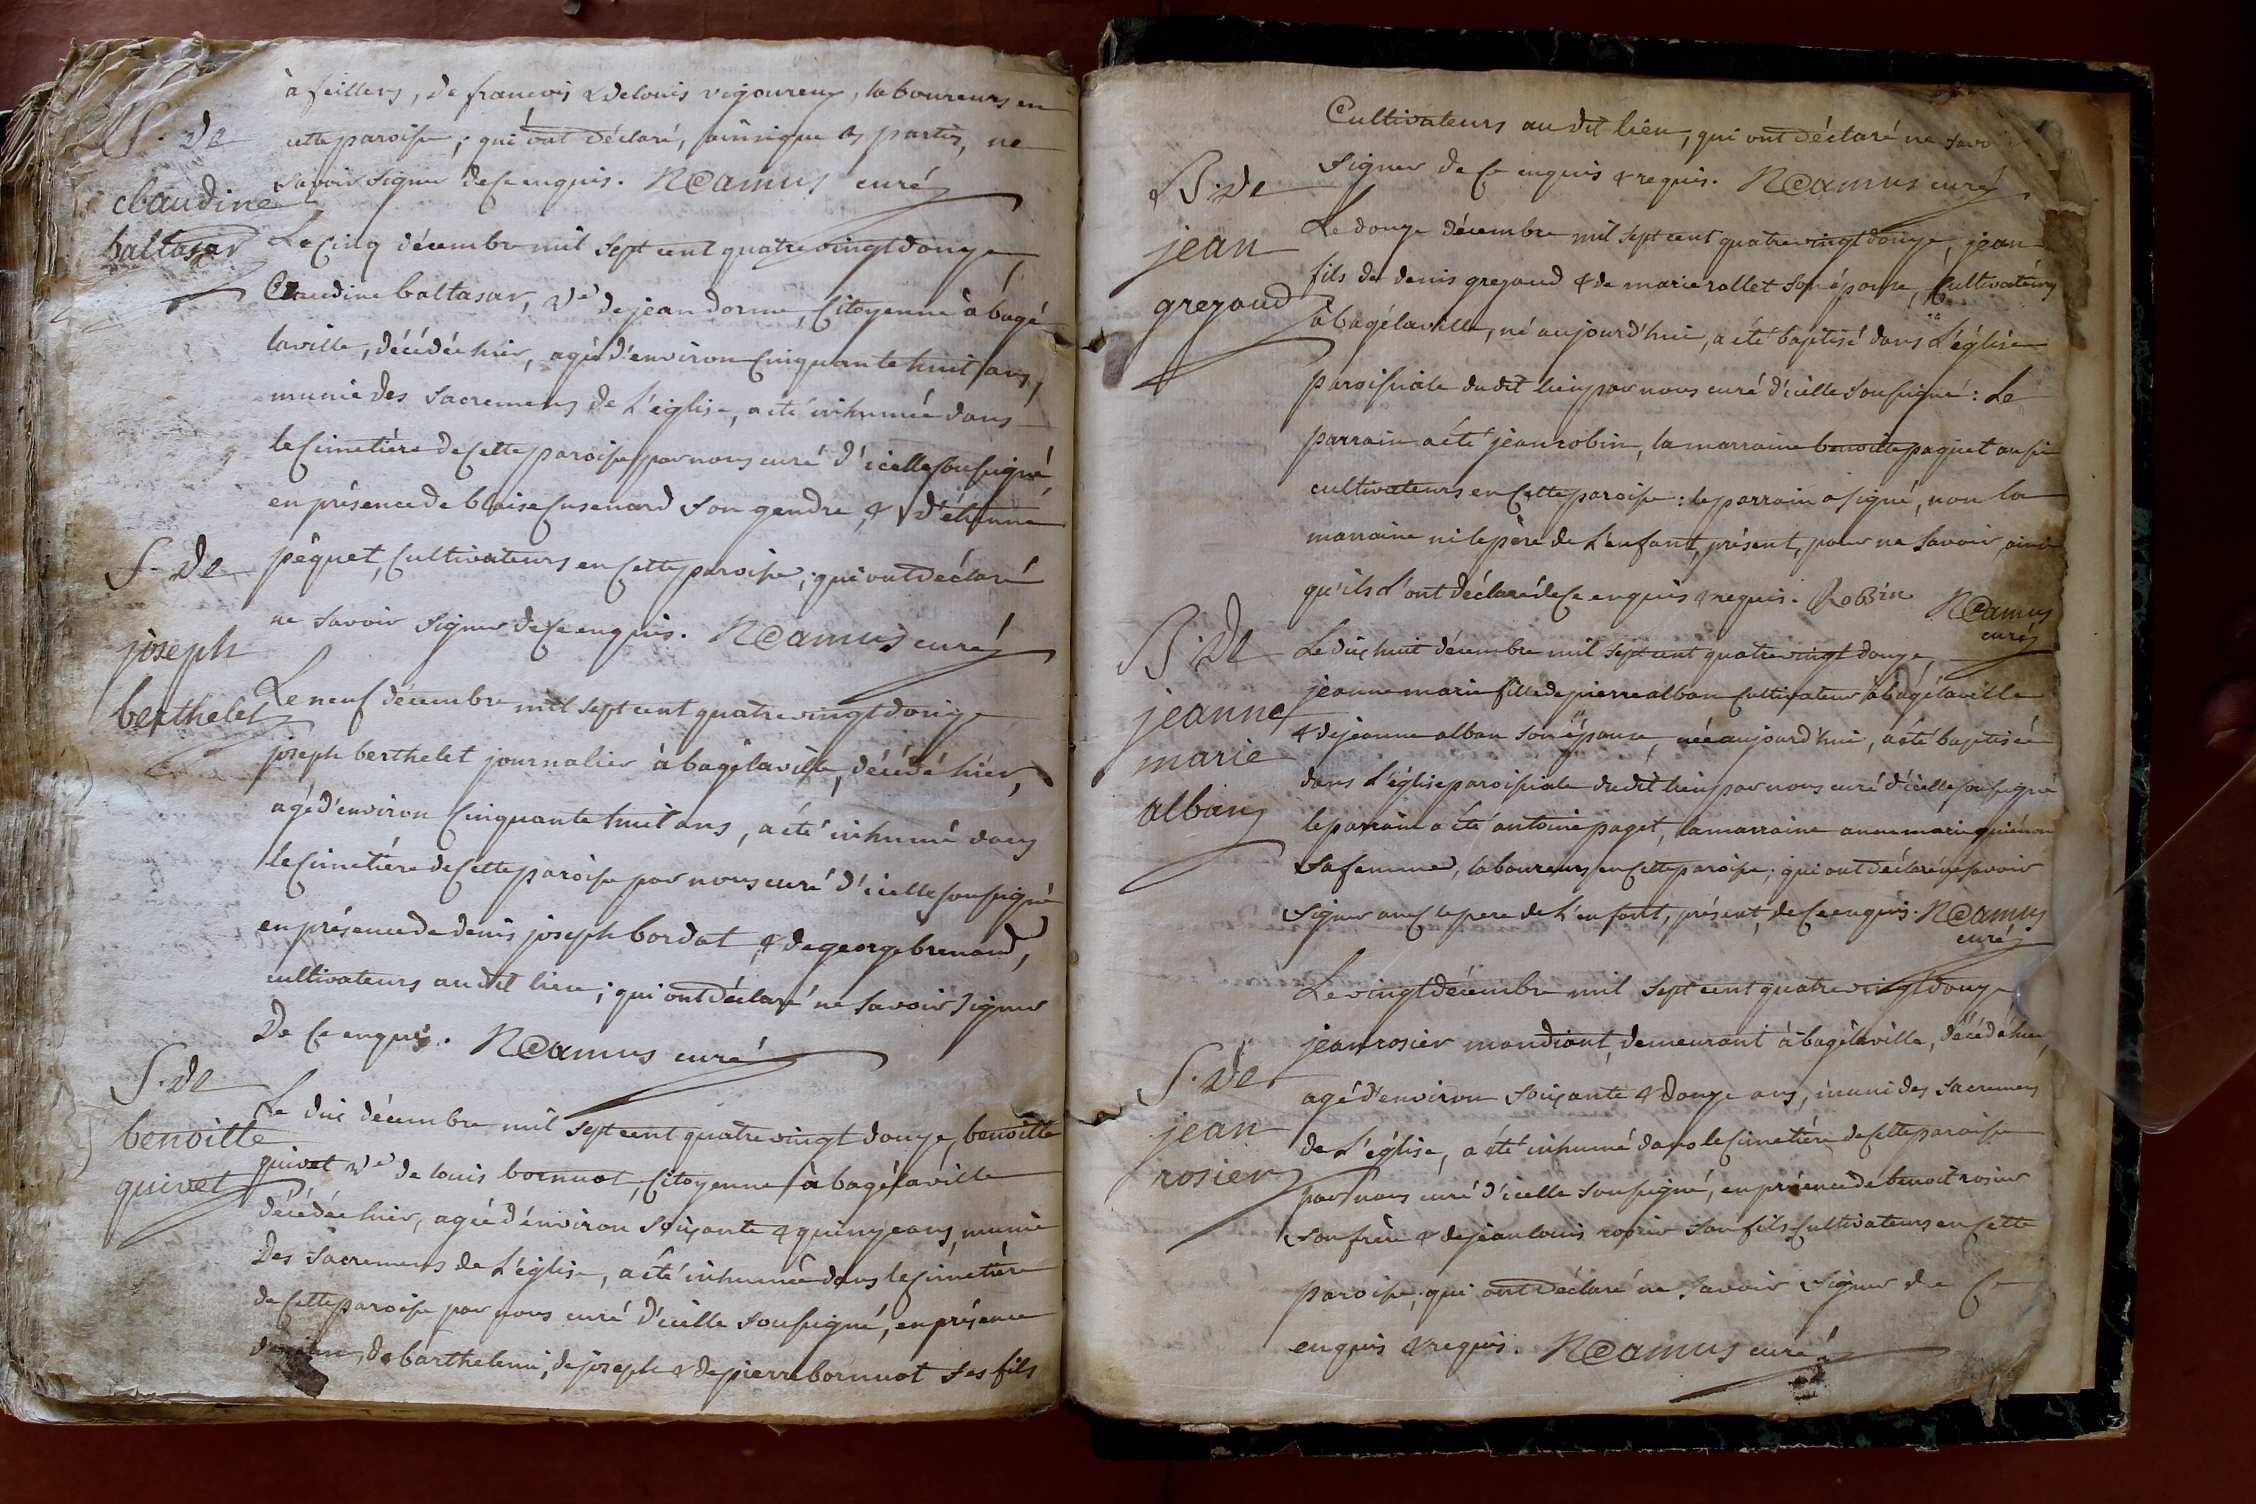 à feillens, de francois & de louis vigoureux, laboureurs en
cette paroisse; qui ont déclaré, ainsique les parties, ne
savoir signer de ce enquis. N Camus curé
S. de
claudine
baltasar
Le Cinq décembre mil sept cent quatre vingt douze,
Claudine baltasar, ve de jean dorme, Citoyenne à bagé
laville, décédée hier, agée d'environ Cinquante huit ans,
munie des sacremens de L'église, a été inhumée dans
le Cimetière de Cette paroisse par nous curé d'icelle soussigné
en présence de blaise Cusenard son gendre, & d'étienne
péquet, Cultivateurs en Cette paroisse; qui ont déclaré
ne savoir signer de ce enquis. N Camus curé
S. de
joseph
berthelet
Le neuf décembre mil sept cent quatre vingt douze
joseph berthelet journalier à bagélaville, décédé hier,
agé d'environ Cinquante huit ans, a été inhumé dans
le Cimetière de Cette paroisse par nous curé d'icelle soussigné
en présence de denis joseph bordat & de george brenaud,
cultivateurs au dit lieu; qui ont déclaré ne savoir signer
De Ce enquis. N Camus curé
S. de
benoitte
quivet
Le dix décembre mil sept cent quatre vingt douze, benoitte
quivet ve de louis bornuat, Citoyenne à bagélaville
décédée hier, agée d'environ soixante & quinze ans, munie
Des sacremens de L'église, a été inhumée dans le Cimetière
de Cette paroisse par nous curé d'icelle soussigné, en présence
de barthelemi, de joseph & de pierre bornuat ses fils
Cultivateurs au dit lieu, qui ont déclaré ne savoir
signer de Ce enquis & requis. N Camus curé
B. de
jean
grezaud
Le douze décembre mil sept cent quatre vingt douze, jean
fils de denis grezaud & de marie rollet son épouse, Cultivateurs
à bagélaville, né aujourd'hui, a été baptisé dans L'église
paroissiale du dit lieu par nous curé d'icelle soussigné: Le
parrain a été jean robin, la marraine benoitte paquet aussi
cultivateurs en Cette paroisse: le parrain a signé, non la
marraine ni le père de L'enfant, présent, pour ne savoir, ainsi
qu'ils L'ont déclaré de Ce enquis & requis. Robin N Camus
curé
B. de
jeanne
marie
alban
Le dix huit décembre mil sept cent quatre vingt douze,
jeanne marie fille de pierre alban Cultivateur à bagélaville
& de jeanne alban son épouse, née aujourd'hui, a été baptisée
dans L'église paroissiale du dit lieu par nous curé d'icelle soussigné
le parrain a été antoine paget, la marraine anne marie
sa femme, laboureurs en Cette paroisse; qui ont déclaré ne savoir
signer avec le pere de L'enfant, présent, de Ce enquis. N Camus
curé
S. de
jean
rosier
Le vingt décembre mil sept cent quatre vingt douze
jean rosier mandiant, demeurant à bagélaville, décédé hier,
agé d'environ soixante & douze ans, muni des sacremens
de L'église, a été inhumé dans le Cimetière de Cette paroisse
par nous curé d'icelle soussigné, en présence de benoit rosier
son frère & de jean louis rosier son fils, Cultivateurs en Cette
paroisse; qui ont déclaré ne savoir signer de Ce
enquis & requis. N Camus curé